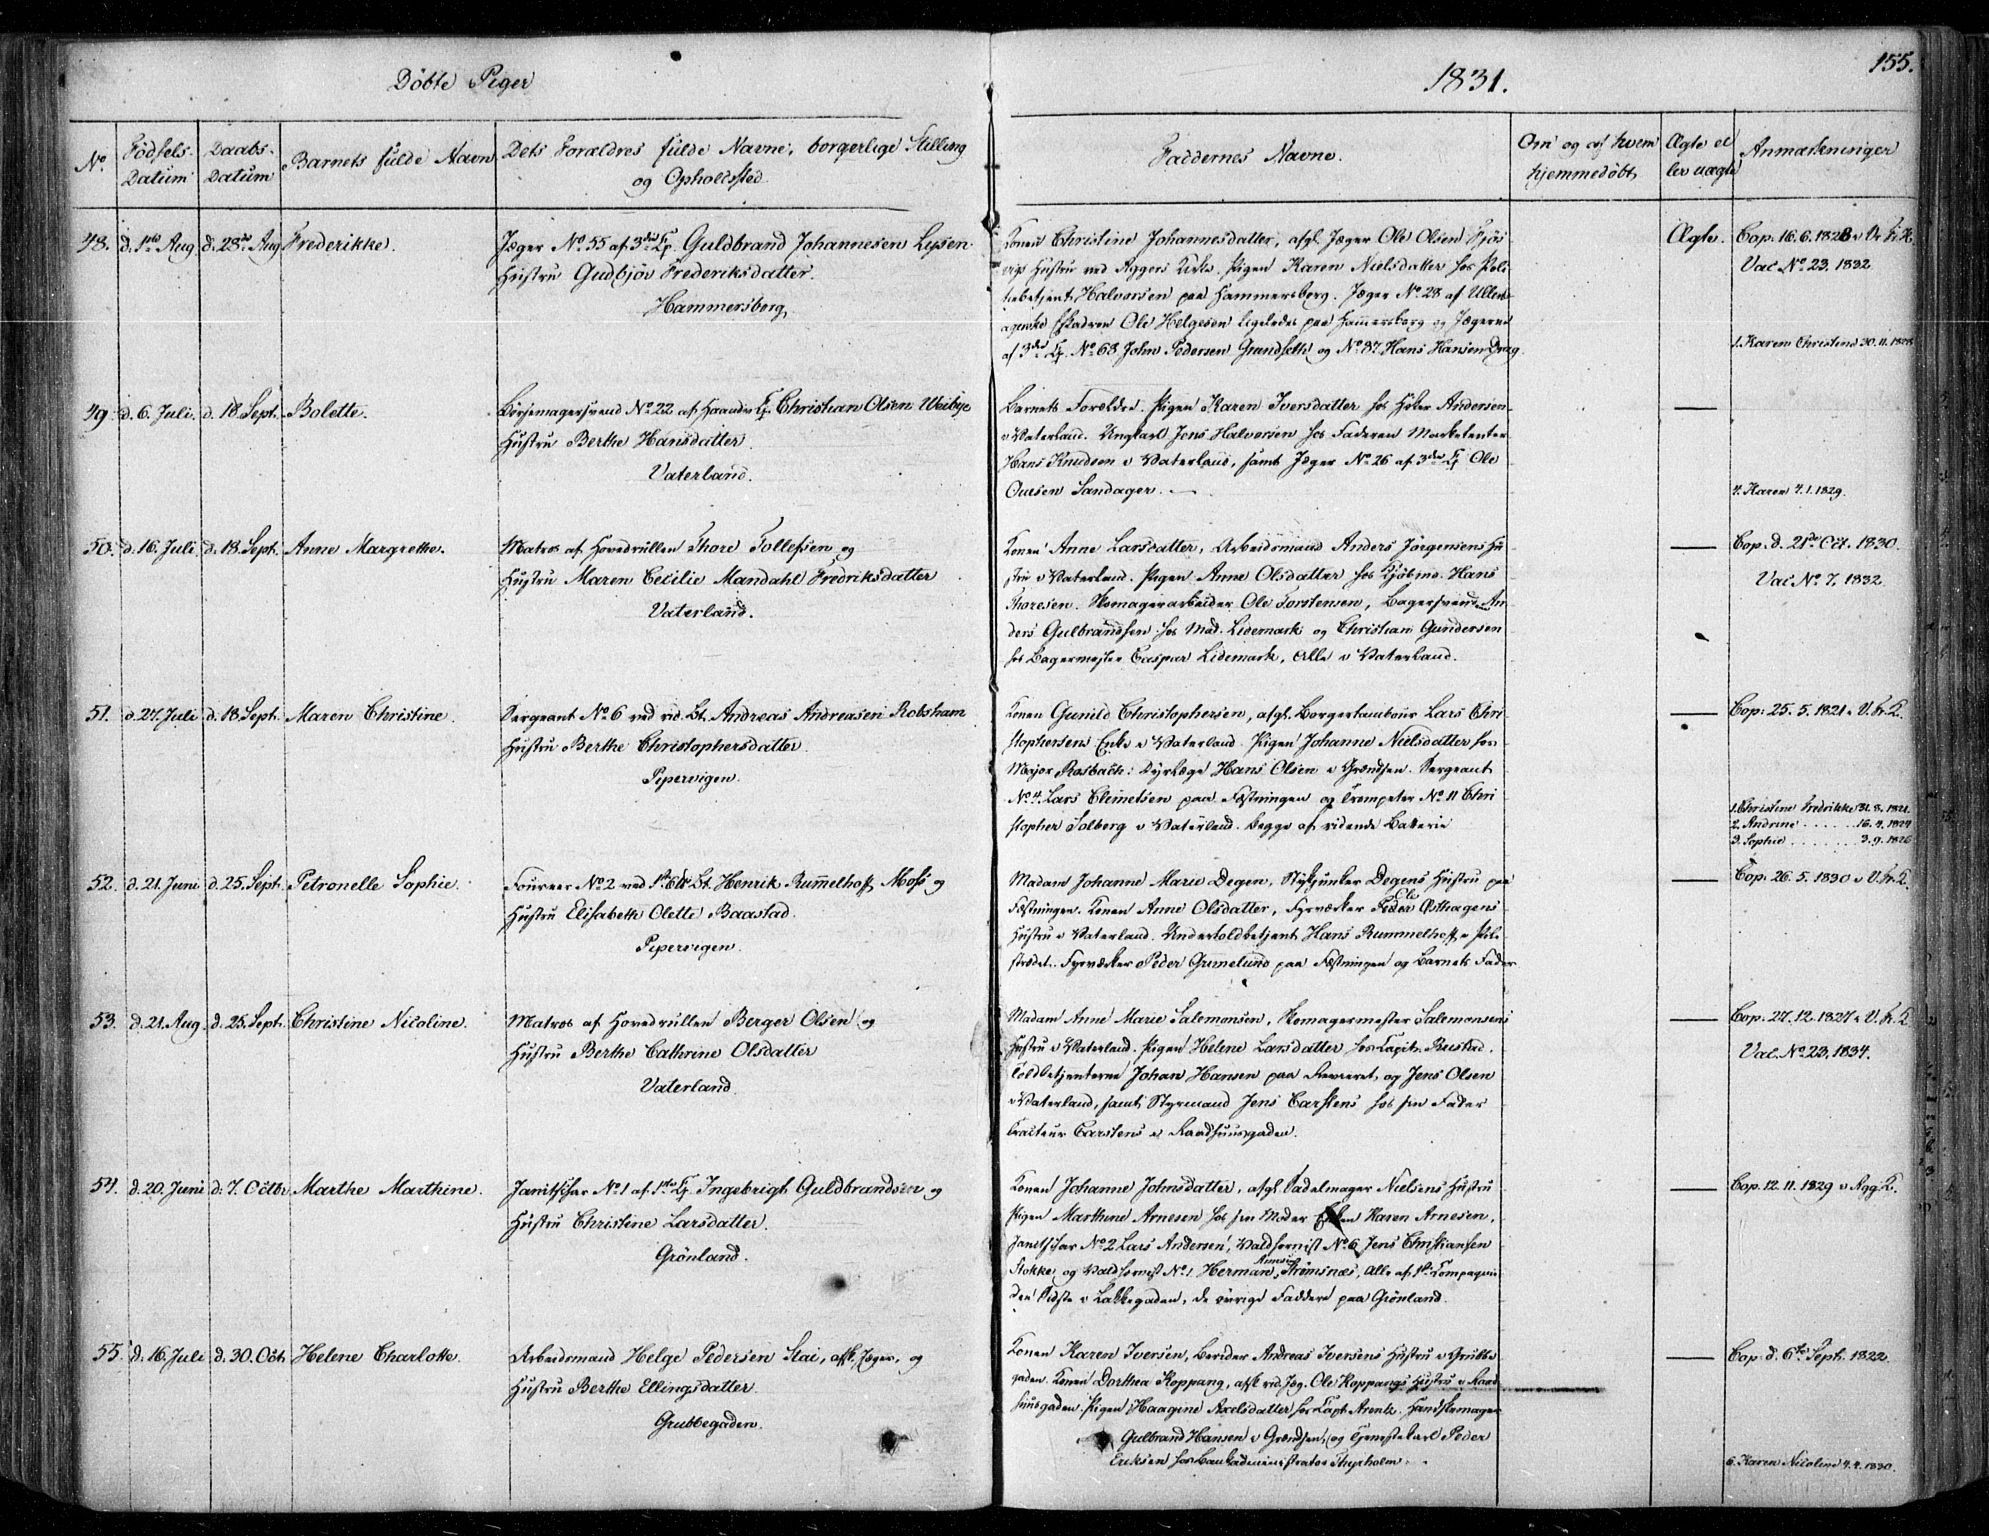 Döbte Piger
1831.
155.
No
Födsels-Datum
Daabs-Datum
Barnets fulde Navn
Dets Forældres fulde Navne, borgerlige Stilling og Opholdssted
Faddernes Navne.
Om og af hvem hjemmedöbt
Ægte eller uægte
Anmærkninger
48. d. 1ste Aug. d. 28de Aug. Frederikke.
Jæger No 55 af 3die Cp. Guldbrand Johannesen
Hustru Gudbjör Frederiksdatter.
Hammersborg.
Konen Christine Johannesdatter, afgl. Jæger Ole Olsen
Hustru ved Aggers Kirke. Pigen Karen Nielsdatter hos Poli
tiebetjent Halvorsen paa Hammersborg. Jæger No 28 af Ullen
agerske Eskadron Ole Helgesen ligeledes paa Hammersborg og Jægerne
af 3die Cp. No 68 John Pedersen Grundseth og No 87 Hans Hansen Drog.
Ægte.
Cop. 16.6.1828 v. Vr. Fr. K.
Vac. No 23. 1832
1. Karen Christine 30.11.1828
49. d. 6. Juli. d. 18. Sept. Bolette.
Börsemagersvend No 22 af Haandv. Cp. Christian Olsen Weibye
Hustru Berthe Hansdatter.
Vaterland.
Barnets Forældre. Pigen Karen Iversdatter hos Höker Andersen
i Vaterland. Ungkarl Jens Halvorsen hos Faderen Marketenter
Hans Knudsen i Vaterland, samt Jæger No 26 af 3die Cp. Ole
Ouesen Sandager.
4. Karen 4.1.1829.
50. d. 16. Juli. d. 18. Sept. Anne Margrethe.
Matros af Hovedrullen Thore Tollefsen og
Hustru Maren Cecilie Mandahl Fredriksdatter
Vaterland.
Konen Anne Larsdatter, Arbeidsmand Anders Jörgensens Hu
stru i Vaterland. Pigen Anne Olsdatter hos Kjöbmd. Hans
Thoresen. Skomagerarbeider Ole Torstensen, Bagersvend An
ders Gulbrandsen hos Mad. Lidemark og Christian Gundersen
hos Bagermester Caspar Lidemark, Alle i Vaterland.
Cop. d. 21de Oct. 1830.
Vac. No 7. 1832.
51. d. 27. Juli d. 18. Sept. Maren Christine.
Sergeant No 6 ved rid. Bt. Andreas Andreasen Robsham
Hustru Berthe Christophersdatter.
Pipervigen.
Konen Gunild Christophersen, afgl. Borgertambour Lars Chri
stophersens Enke i Vaterland. Pigen Johanne Nielsdatter hos
Major Rosbach. Dyrlæge Hans Olsen i Grændsen. Sergeant
No 4. Lars Clemetsen paa Fæstningen og Trompeter No 11 Chri
stopher Solberg i Vaterland. Begge af ridende Batterie
Cop. 25.5.1821 v. V. Fr. K.
1. Christine Fredrikke 31.8.1821.
2. Andrine . . . . . . 16.4.1824
3. Sophie . . . . . . . 3.9.1826
52. d. 21. Juni d. 25. Sept. Petronelle Sophie.
Foureer No 2 ved 1ste Bt. Henrik Rummelhoff Moss og
Hustru Elisabeth Olette Baastad.
Pipervigen.
Madam Johanne Marie Degen, Stykjunker Degens Hustru paa
Fæstningen. Konen Anne Olsdatter, Fyrværker Peder Östhagens
Hustru i Vaterland. Undertoldbetjent Hans Rummelhoff i Pile
strædet. Fyrværker Peder Grunelund paa Fæstningen og Barnets Fader
Cop. 26.5.1830 v. V. Fr. K.
53. d. 21. Aug. d. 25. Sept. Christine Nicoline.
Matros af Hovedrullen Berger Olsen og
Hustru Berthe Cathrine Olsdatter
Vaterland.
Madam Anne Marie Salemonsen, Skomagermester Salemonsens
Hustru i Vaterland. Pigen Helene Larsdatter hos Capit. Rustad.
Toldbetjenterne Johan Hansen paa Reveeret, og Jens Olsen
i Vaterland, samt Styrmand Jens Carstens hos sin Fader
Tracteur Carstens i Raadhuusgaden.
Cop. 27.12.1827 v. V. Fr. K.
Vac. No 23. 1834.
54. d. 20. Juni d. 7. Octbr. Marthe Marthine.
Janitschar No 1 af 1ste Cp. Ingebrigh Guldbrandsen og
Hustru Christine Larsdatter.
Grönland.
Konen Johanne Johnsdatter, afgl. Sadelmager Nielsens Hustru
Pigen Marthine Arnesen hos sin Moder Enken Karen Arnesen,
Janitschar No 2 Lars Andersen, Valdhornist No 6 Jens Christiansen
Stokke og Valdhornist No 1 Herman Arnesen Strömsnæs, Alle af 1ste Compagnie
den Sidste i Lakkegaden, de övrige Faddere paa Grönland.
Cop. 12.11.1829 v. Agg. K.
55. d. 16. Juli d. 30. Oct. Helene Charlotte.
Arbeidsmand Helge Pedersen Stai, afsk. Jæger, og
Hustru Berthe Ellingsdatter.
Grubbegaden.
Konen Karen Iversen, Berider Andreas Iversens Hustru i Grubbe
gaden. Konen Dorthea Koppang, afsk. rid. Jæg. Ole Koppangs Hustru i Raad
huusgaden. Pigen Haagine Axelsdatter hos Capt. Arentz. Handskemager
Gulbrand Hansen i Grændsen, og Tjenestekarl Peder
Eriksen hos Bankadministrator Thyrholm.
Cop. d. 6te Sept. 1822.
6. Karen Nicoline 4.4.1830.